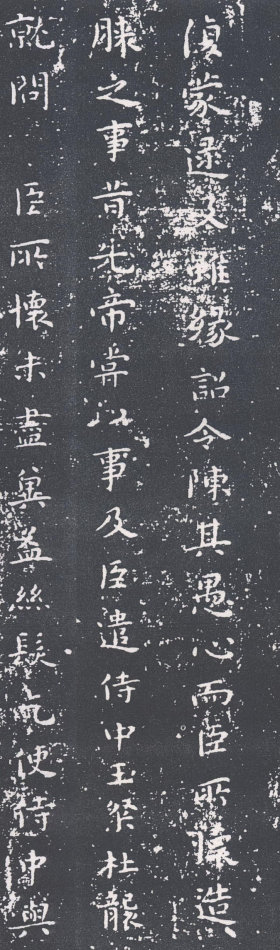 蒙逮及雖緣詔令陳其愚心而臣所懷造
膝之事昔先帝嘗以事及臣遣侍中王粲杜襲
就問臣所懷未盡冀益絲髮气使侍中與